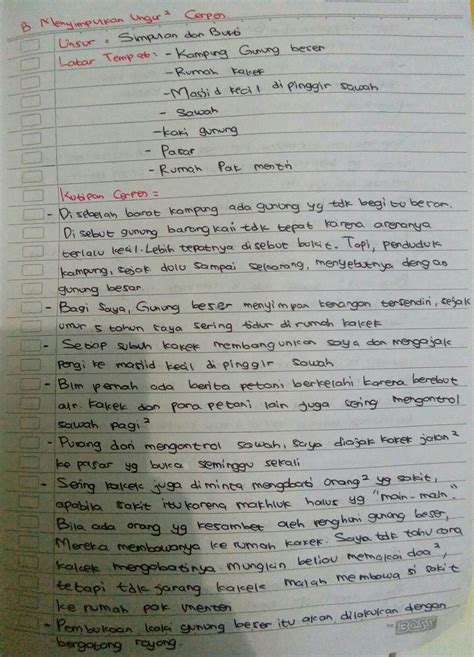 B Menyimpulkan Unsur² Cerpen
Unsur = Simpulan dan Bukti
Latar Tempat = - Kampung Gunung beser
- Rumah kakek
- Masjid kecil di pinggir sawah
- Sawah
- kaki gunung
- Pasar
- Rumah Pak mentri
Kutipan Cerpen =
- Di sebelah barat kampung ada gunung yg tdk begitu besar.
Disebut gunung barangkali tdk tepat karena arenanya
terlalu kecil. Lebih tepatnya disebut bukit. Tapi, penduduk
kampung, sejak dulu sampai sekarang, menyebutnya dengan
gunung besar
- Bagi Saya, Gunung beser menyimpan kenangan tersendiri, sejak
umur 5 tahun saya sering tidur di rumah kakek
- Setiap subuh kakek membangunkan saya dan mengajak
pergi ke masjid kecil di pinggir sawah
- Blm pernah ada berita petani berkelahi karena berebut
air. Kakek dan para petani lain juga sering mengontrol
sawah pagi²
- Pulang dari mengontrol sawah, saya diajak kakek jalan²
ke pasar yg buka seminggu sekali
- Sering kakek juga diminta mengobati orang² yg sakit,
apabila sakit itu karena makhluk halus yg "main-main."
Bila ada orang yg kesambet oleh penghuni gunung beser,
Mereka membawanya ke rumah kakek. Saya tdk tahu cara
kakek mengobatinya. Mungkin beliau memakai doa²,
tetapi tdk jarang kakek malah membawa si sakit
ke rumah pak menteri
- Pembukaan kaki gunung beser itu akan dilakukan dengan
bergotong royong.
BOSS